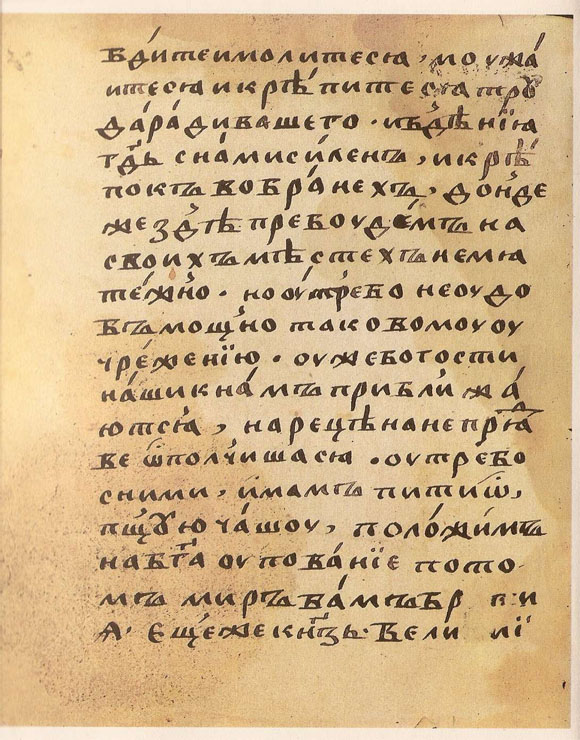 бди́теимолитесѧ, моужа́
итесѧикрѣ́питесѧтрꙋ
да́ра́дивашего · ибд҃ѣнїѧ
гд҃ь сна́миси́ленъ, икрѣ́
покъвобра́нехъ, дон҃де
жезд҃ѣпребоуде́мъна
своихъмѣ́стехънемѧ
те́жно · ноо́утребонеоудо
бъмощно таковомуоу
чреже́нїю · оужебогости
на́шикна́мъприбли́жа́
ютсѧ, нарецѣнанепрѧ́д
веѿполчи́шасѧ · оутребо
сними, и́мамъпитиѿ,
пщꙋюча́шоу, поло́жимъ
наб҃гаоупова́нїе пото
мъ миръва́мъбр
ѧ · ещежекнѕ҃ь · вели